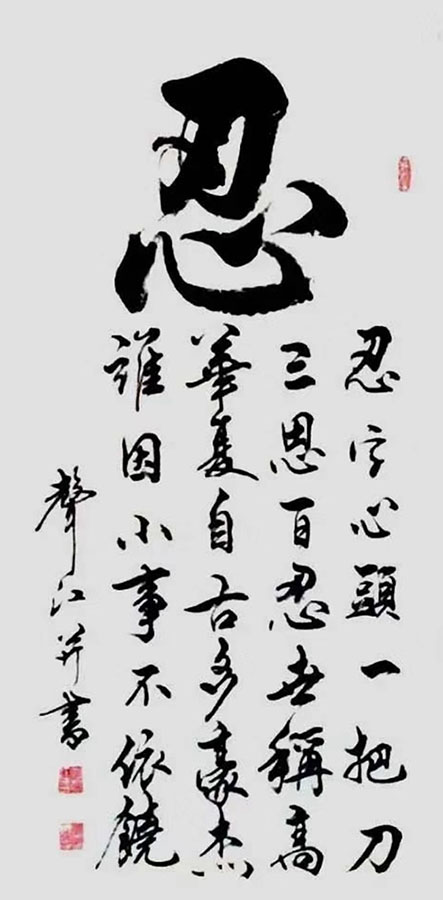 忍
忍字心頭一把刀
三恩百忍世稱高
華夏自古多豪杰
誰因小事不依饒
聲江并書